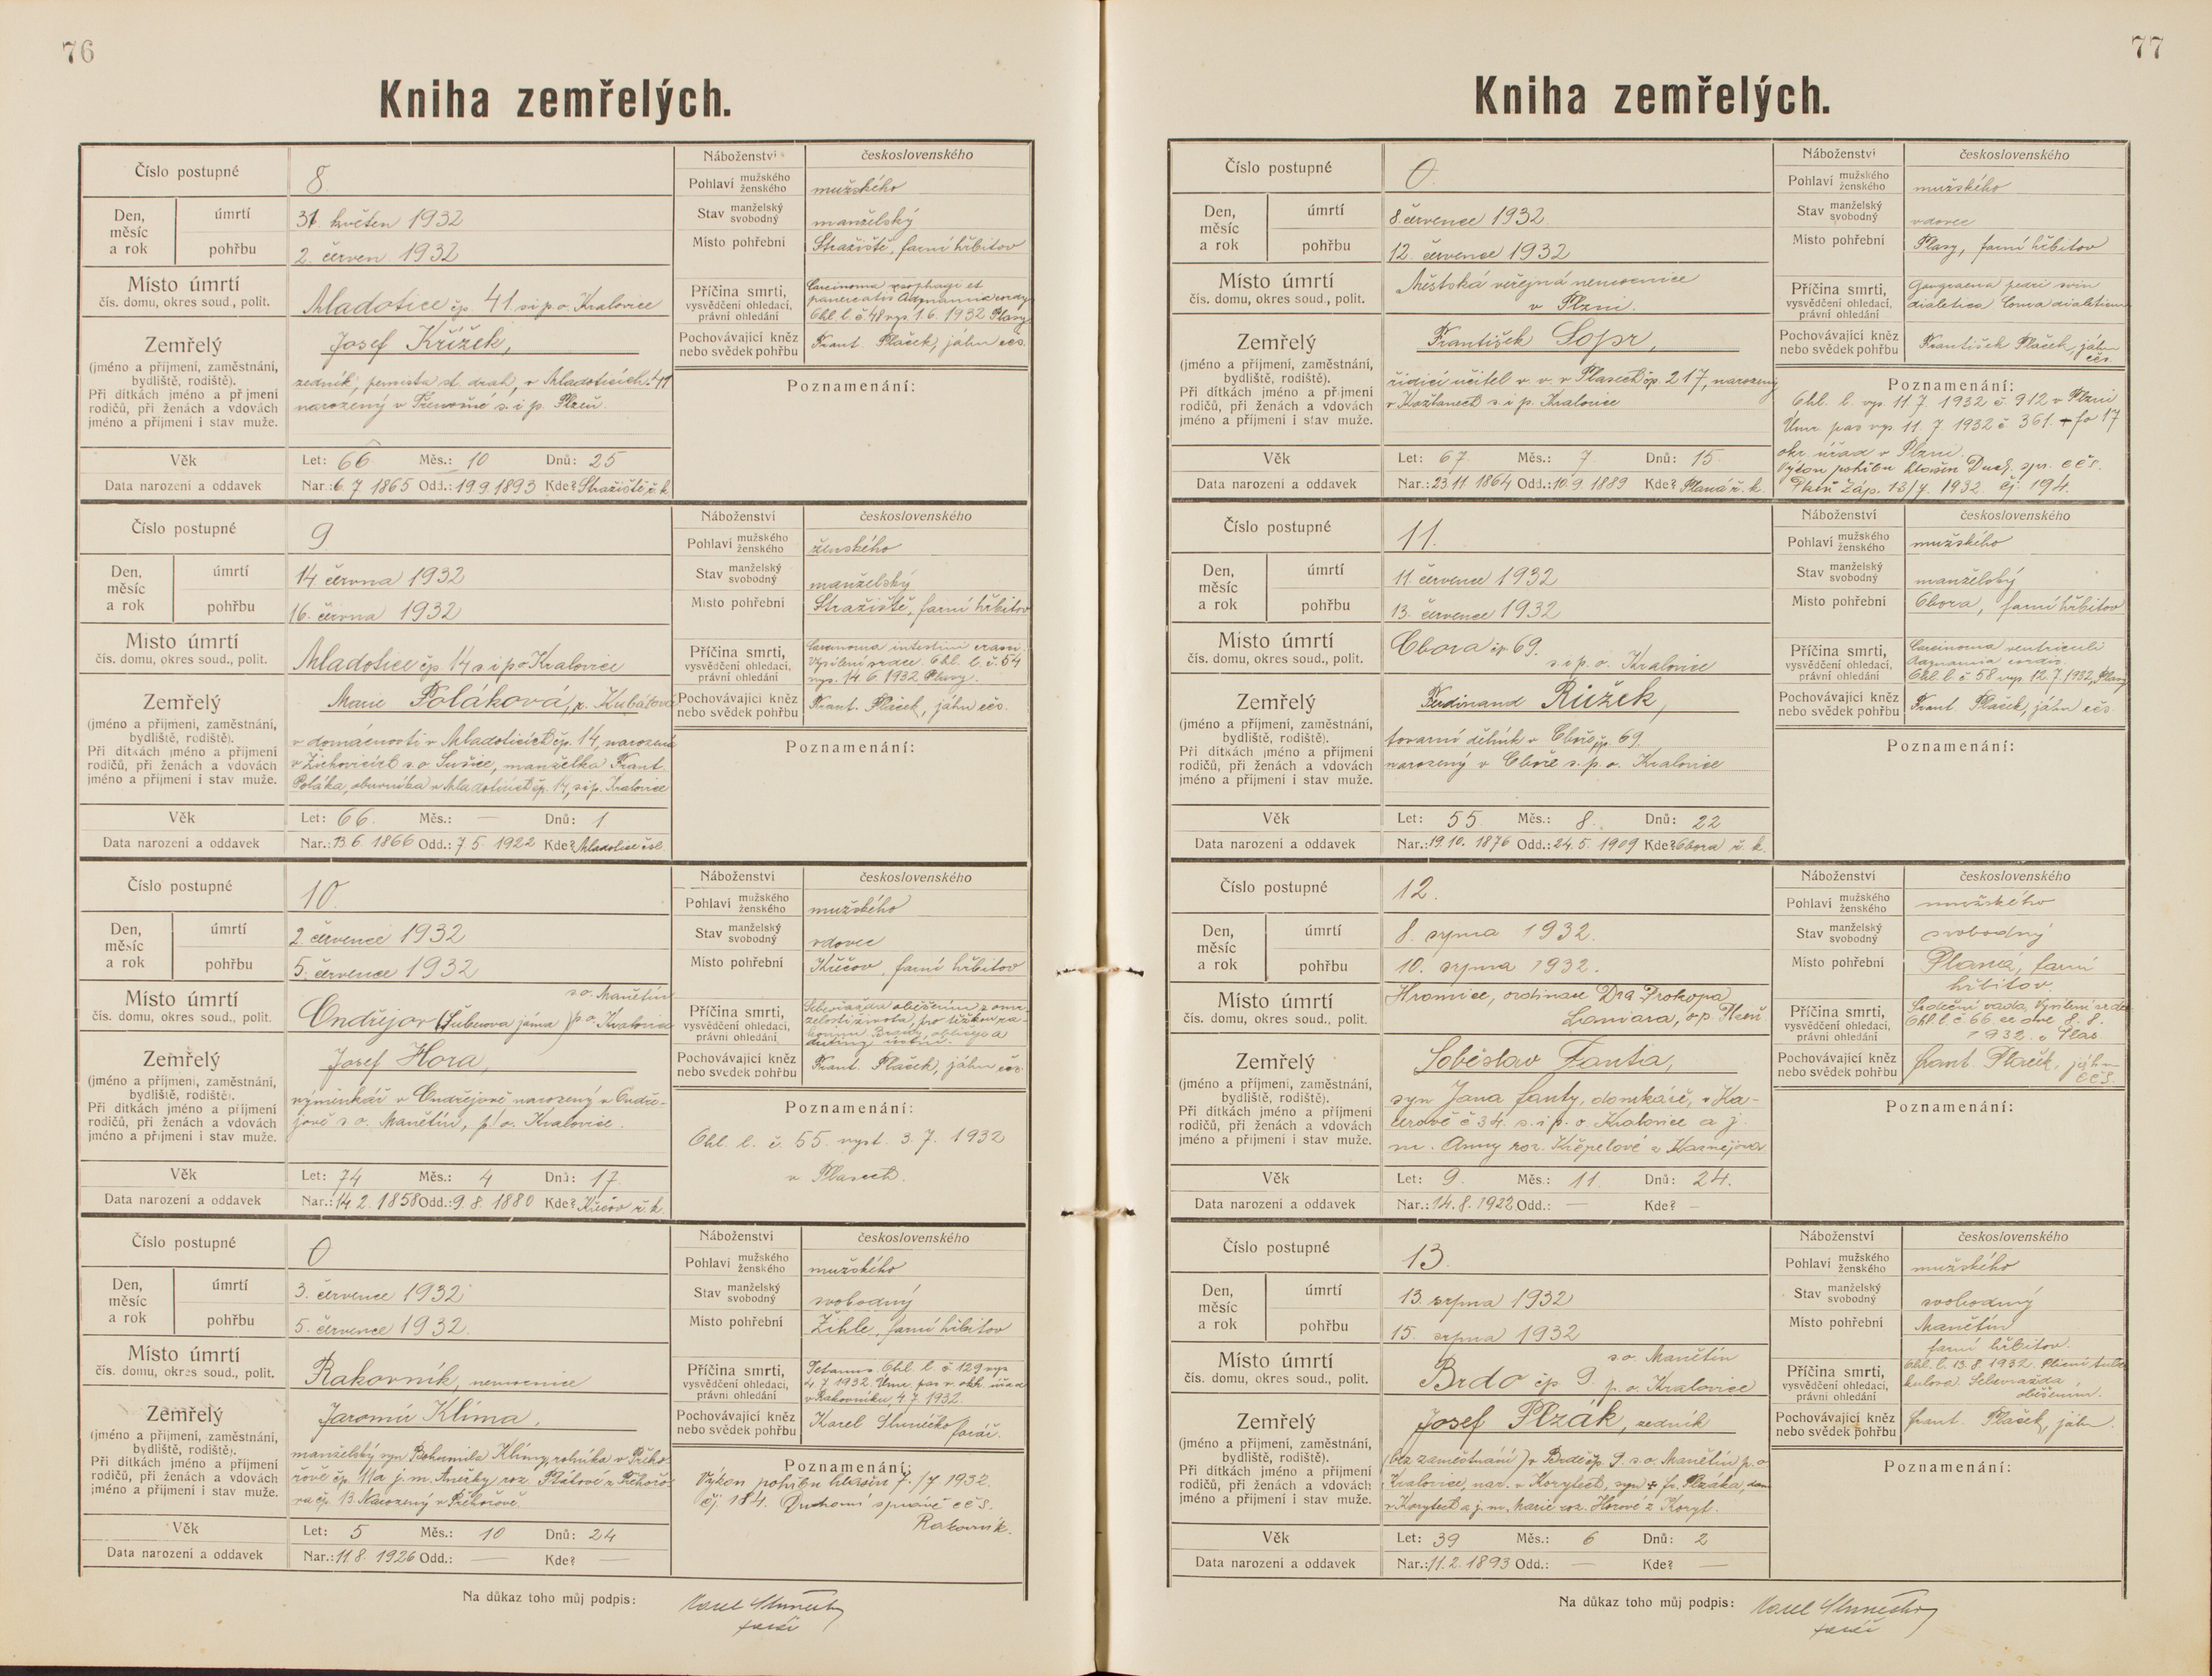 76
Kniha zemřelých.
Číslo postupné 8.
Náboženství československého
Pohlaví mužského ženského mužského
Den, měsíc a rok úmrtí 31. květen 1932
Stav manželský svobodný manželský
pohřbu 2. červen 1932
Místo pohřební Stražiště, farní hřbitov
Místo úmrtí
čís. domu, okres soud., polit. Mladotice čp. 41. s i p. o. Kralovice
Příčina smrti, vysvědčení ohledací, právní ohledání
Carcinoma esophagi et
pancreatis Adynamia cordis
Ohl. l. č. 48 vys. 1. 6. 1932 Plasy
Pochovávající kněz nebo svědek pohřbu Frant. Plaček, jáhn ččs.
Zemřelý
(jméno a příjmení, zaměstnání, bydliště, rodiště).
Při dítkách jméno a příjmení rodičů, při ženách a vdovách jméno a příjmení i stav muže.
Josef Křížek,
zedník, pensista st. drah, v Mladoticích 41
narozený v Třemošné s. i p. Plzeň.
Poznamenání:
Věk Let: 66. Měs.: 10 Dnů: 25
Data narození a oddavek Nar.: 6. 7 1865 Odd.: 19. 9. 1893 Kde? Stražiště ř. k.
Číslo postupné 9.
Náboženství československého
Pohlaví mužského ženského ženského
Den, měsíc a rok úmrtí 14 června 1932
Stav manželský svobodný manželský
pohřbu 16. června 1932
Místo pohřební Stražiště, farní hřbitov
Místo úmrtí
čís. domu, okres soud., polit. Mladotice čp. 14 s i p o Kralovice
Příčina smrti, vysvědčení ohledací, právní ohledání
Carcinoma intestini crassi.
Vysílení srdce Ohl. l. č. 54
vys. 14. 6 1932 Plasy.
Pochovávající kněz nebo svědek pohřbu Frant. Plaček, jáhn ččs.
Zemřelý
(jméno a příjmení, zaměstnání, bydliště, rodiště).
Při dítkách jméno a příjmení rodičů, při ženách a vdovách jméno a příjmení i stav muže.
Marie Poláková, r. Kubátová
v domácnosti v Mladoticích čp. 14, narozena
v Žichovicích s. o Sušice, manželka Frant.
Poláka, obuvníka v Mladoticích čp. 14, s i p. Kralovice
Poznamenání:
Věk Let: 66. Měs.: — Dnů: 1
Data narození a oddavek Nar.: 13. 6. 1866 Odd.: 7 5. 1922 Kde? Mladotice čsl.
Číslo postupné 10.
Náboženství československého
Pohlaví mužského ženského mužského
Den, měsíc a rok úmrtí 2. července 1932
Stav manželský svobodný vdovec
pohřbu 5. července 1932
Místo pohřební Křečov, farní hřbitov
Místo úmrtí
čís. domu, okres soud., polit. s. o. Manětín
Ondřejov jáma) p. o. Kralovice
Příčina smrti, vysvědčení ohledací, právní ohledání
Sebevražda oběšením z omr
zelosti života, pro
obličeje a
Pochovávající kněz nebo svědek pohřbu Frant. Plaček, jáhn ččs.
Zemřelý
(jméno a příjmení, zaměstnání, bydliště, rodiště).
Při dítkách jméno a příjmení rodičů, při ženách a vdovách jméno a příjmení i stav muže.
Josef Hora,
výminkář v Ondřejově narozený v Ondře-
jově s. o. Manětín, p. o. Kralovice.
Poznamenání:
Ohl. l. č. 55. vyst. 3. 7. 1932
v Plasech.
Věk Let: 74 Měs.: 4 Dnů: 17.
Data narození a oddavek Nar.: 14. 2. 1858 Odd.: 9. 8. 1880 Kde? Křečov ř. k.
Číslo postupné 0
Náboženství československého
Pohlaví mužského ženského mužského
Den, měsíc a rok úmrtí 3. července 1932
Stav manželský svobodný svobodný
pohřbu 5. července 1932.
Místo pohřební Žihle, farní hřbitov
Místo úmrtí
čís. domu, okres soud., polit. Rakovník, nemocnice
Příčina smrti, vysvědčení ohledací, právní ohledání
Tetanus. Ohl. l. č. 129 vys
4. 7 1932. Úmr. pas v. okr. úřad
v Rakovníku, 4. 7. 1932.
Pochovávající kněz nebo svědek pohřbu Karel Slunéčko farář.
Zemřelý
(jméno a příjmení, zaměstnání, bydliště, rodiště).
Při dítkách jméno a příjmení rodičů, při ženách a vdovách jméno a příjmení i stav muže.
Jaromír Klíma,
manželský syn Bohumila Klímy, rolníka v Přeho-
řově čp. 11 a j. m. Anežky roz. Plátové z Přehořo-
va čp. 13. Narozený v Přehořově.
Poznamenání:
Výkon pohřbu hlášen 7./7 1932.
čj. 184. Duchovní správě ččs.
Rakovník.
Věk Let: 5 Měs.: 10 Dnů: 24
Data narození a oddavek Nar.: 11 8. 1926 Odd.: — Kde? —
Na důkaz toho můj podpis: Karel Slunéčko
farář
77
Kniha zemřelých.
Číslo postupné 0.
Náboženství československého
Pohlaví mužského ženského mužského
Den, měsíc a rok úmrtí 8. července 1932
Stav manželský svobodný vdovec
pohřbu 12. července 1932
Místo pohřební Plasy, farní hřbitov
Místo úmrtí
čís. domu, okres soud., polit. Městská veřejná nemocnice
v Plzni.
Příčina smrti, vysvědčení ohledací, právní ohledání
Gangraena pedis
Coma
Pochovávající kněz nebo svědek pohřbu František Plaček, jáhn
ččs.
Zemřelý
(jméno a příjmení, zaměstnání, bydliště, rodiště).
Při dítkách jméno a příjmení rodičů, při ženách a vdovách jméno a příjmení i stav muže.
František Sopr,
řídící učitel v. v. v Plasech čp. 217, narozený
v Kožlanech s. i p. Kralovice
Poznamenání:
Ohl. l. vys. 11 7. 1932 č 912 v Plzni
Úmr. pas vys 11. 7. 1932 č 361. fo 17
okr. úřad v Plzni.
Výkon pohřbu hlášen Duch. spr. ččs.
Plzeň Záp. 13/7. 1932. čj. 194.
Věk Let: 67. Měs.: 7. Dnů: 15.
Data narození a oddavek Nar.: 23. 11 1864 Odd.: 10. 9 1889 Kde? Planá ř. k.
Číslo postupné 11.
Náboženství československého
Pohlaví mužského ženského mužského
Den, měsíc a rok úmrtí 11 července 1932
Stav manželský svobodný manželský
pohřbu 13. července 1932
Místo pohřební Obora, farní hřbitov
Místo úmrtí
čís. domu, okres soud., polit. Obora čp. 69.
s. i p. o. Kralovice
Příčina smrti, vysvědčení ohledací, právní ohledání
Carcinoma ventriculi
Adynamia cordis.
Ohl. l. č 58 vys. 12. 7. 1932, Plasy
Pochovávající kněz nebo svědek pohřbu Frant. Plaček, jáhn ččs.
Zemřelý
(jméno a příjmení, zaměstnání, bydliště, rodiště).
Při dítkách jméno a příjmení rodičů, při ženách a vdovách jméno a příjmení i stav muže.
Ferdinand Růžek,
tovární dělník v Oboře čp. 69.
narozený v Oboře s. p. o. Kralovice
Poznamenání:
Věk Let: 55. Měs.: 8. Dnů: 22
Data narození a oddavek Nar.: 19. 10. 1876 Odd.: 24. 5. 1909 Kde? Obora ř. k.
Číslo postupné 12.
Náboženství československého
Pohlaví mužského ženského mužského
Den, měsíc a rok úmrtí 8. srpna 1932.
Stav manželský svobodný svobodný
pohřbu 10. srpna 1932.
Místo pohřební Planá, farní
hřbitov.
Místo úmrtí
čís. domu, okres soud., polit. Hromice, ordinace Dra Prokopa
o. p. Plzeň
Příčina smrti, vysvědčení ohledací, právní ohledání
Srdeční vada, Vysílení srdce
Ohl. l. č 66 ze dne 8. 8.
1932. v Plas.
Pochovávající kněz nebo svědek pohřbu Frant. Plaček, jáhn
ččs.
Zemřelý
(jméno a příjmení, zaměstnání, bydliště, rodiště).
Při dítkách jméno a příjmení rodičů, při ženách a vdovách jméno a příjmení i stav muže.
Soběslav Fanta,
syn Jana Fanty, domkáře, v Ka-
cerově č 34. s. i p. o. Kralovice a j.
m. Anny roz. Křepelové z Kaznějova
Poznamenání:
Věk Let: 9. Měs.: 11. Dnů: 24.
Data narození a oddavek Nar.: 14. 8. 1922 Odd.: — Kde? —
Číslo postupné 13.
Náboženství československého
Pohlaví mužského ženského mužského
Den, měsíc a rok úmrtí 13. srpna 1932
Stav manželský svobodný svobodný
pohřbu 15. srpna 1932
Místo pohřební Manětín
farní hřbitov.
Místo úmrtí
čís. domu, okres soud., polit. s. o. Manětín
Brdo čp 9. p. o. Kralovice
Příčina smrti, vysvědčení ohledací, právní ohledání
Ohl. l. 13. 8. 1932. Plicní tuber
kulosa. Sebevražda
oběšením.
Pochovávající kněz nebo svědek pohřbu Frant. Plaček, jáhn.
Zemřelý
(jméno a příjmení, zaměstnání, bydliště, rodiště).
Při dítkách jméno a příjmení rodičů, při ženách a vdovách jméno a příjmení i stav muže.
Josef Plzák, zedník
(bez zaměstnání) v Brdě čp. 9 s. o. Manětín p. o
Kralovice, nar. v Korytech, syn † Fr. Plzáka, dom
v Korytech a j. m. Marie roz. Horové z Koryt.
Poznamenání:
Věk Let: 39 Měs.: 6 Dnů: 2
Data narození a oddavek Nar.: 11. 2. 1893 Odd.: — Kde? —
Na důkaz toho můj podpis: Karel Slunéčko
farář